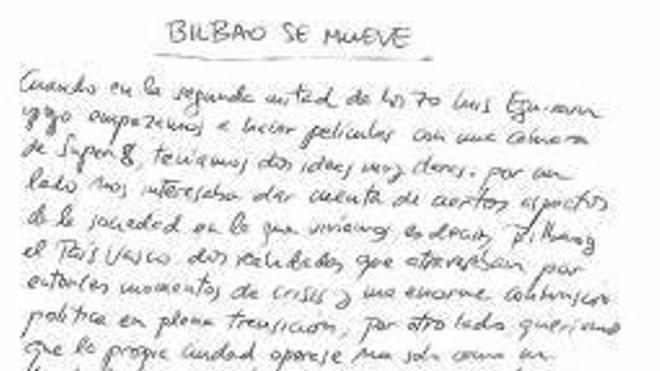 BILBAO SE MUEVE
Cuando en la segunda mitad de los 70 Luis Eguiraun
y yo empezamos a hacer películas con una cámara
de Super 8, teníamos dos ideas muy claras. por un
lado nos interesaba dar cuenta de ciertos aspectos
de la sociedad en la que vivíamos, es decir, Bilbao y
el País Vasco dos realidades que atravesaban por
entonces momentos de crisis y una enorme convulsión
política en plena transición, por otro lado queríamos
que la propia ciudad apareciese no solo como un